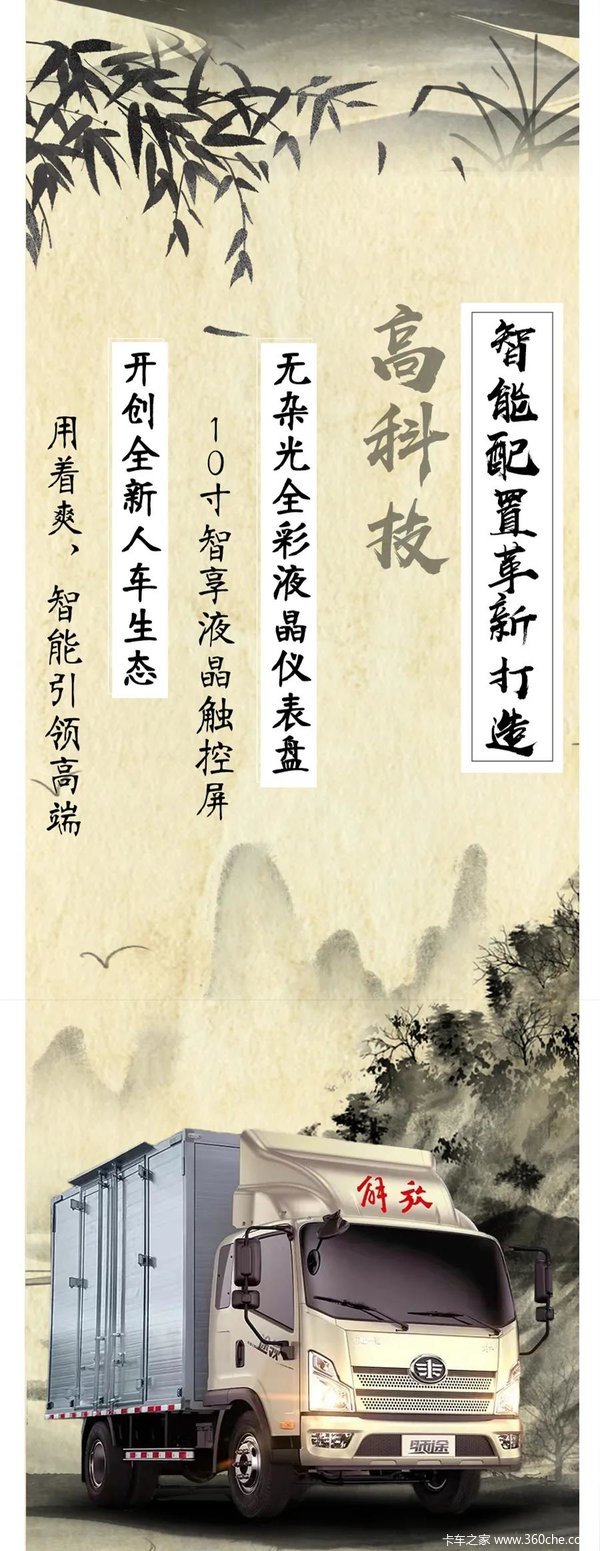 智能配置革新打造
高科技
无杂光全彩液晶仪表盘
10寸智享液晶触控屏
开创全新人车生态
用着爽，智能引领高端
解放
领途
卡车之家 www.360che.com